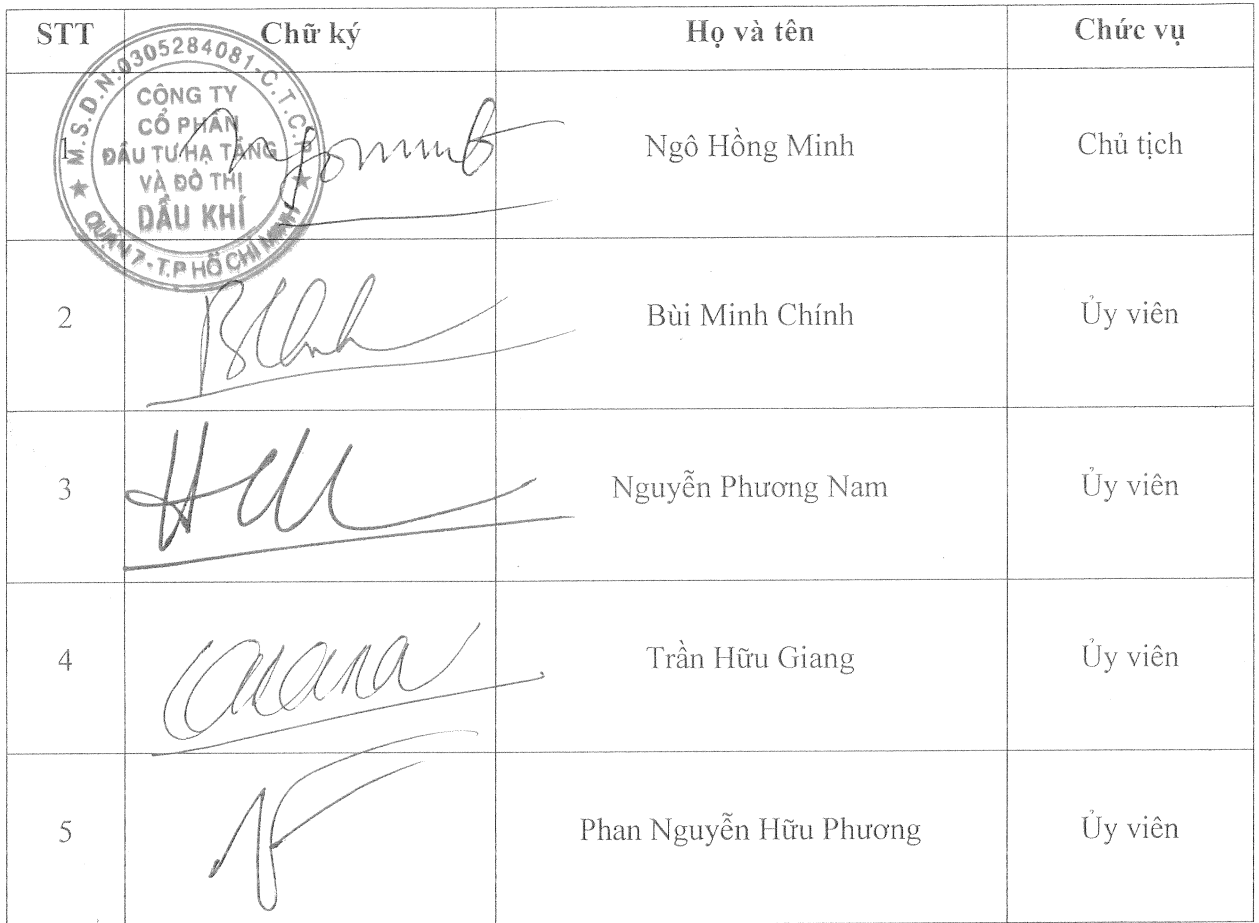 STT Chữ ký Họ và tên Chức vụ
1 Ngô Hồng Minh Chủ tịch
M.S.D.N:0305284081-C.T.C.P
CÔNG TY
CỔ PHẦN
ĐẦU TƯ HẠ TẦNG
VÀ ĐÔ THỊ
DẦU KHÍ
QUẬN 7-T.P HỒ CHÍ MINH
2 Bùi Minh Chính Ủy viên
3 Nguyễn Phương Nam Ủy viên
4 Trần Hữu Giang Ủy viên
5 Phan Nguyễn Hữu Phương Ủy viên